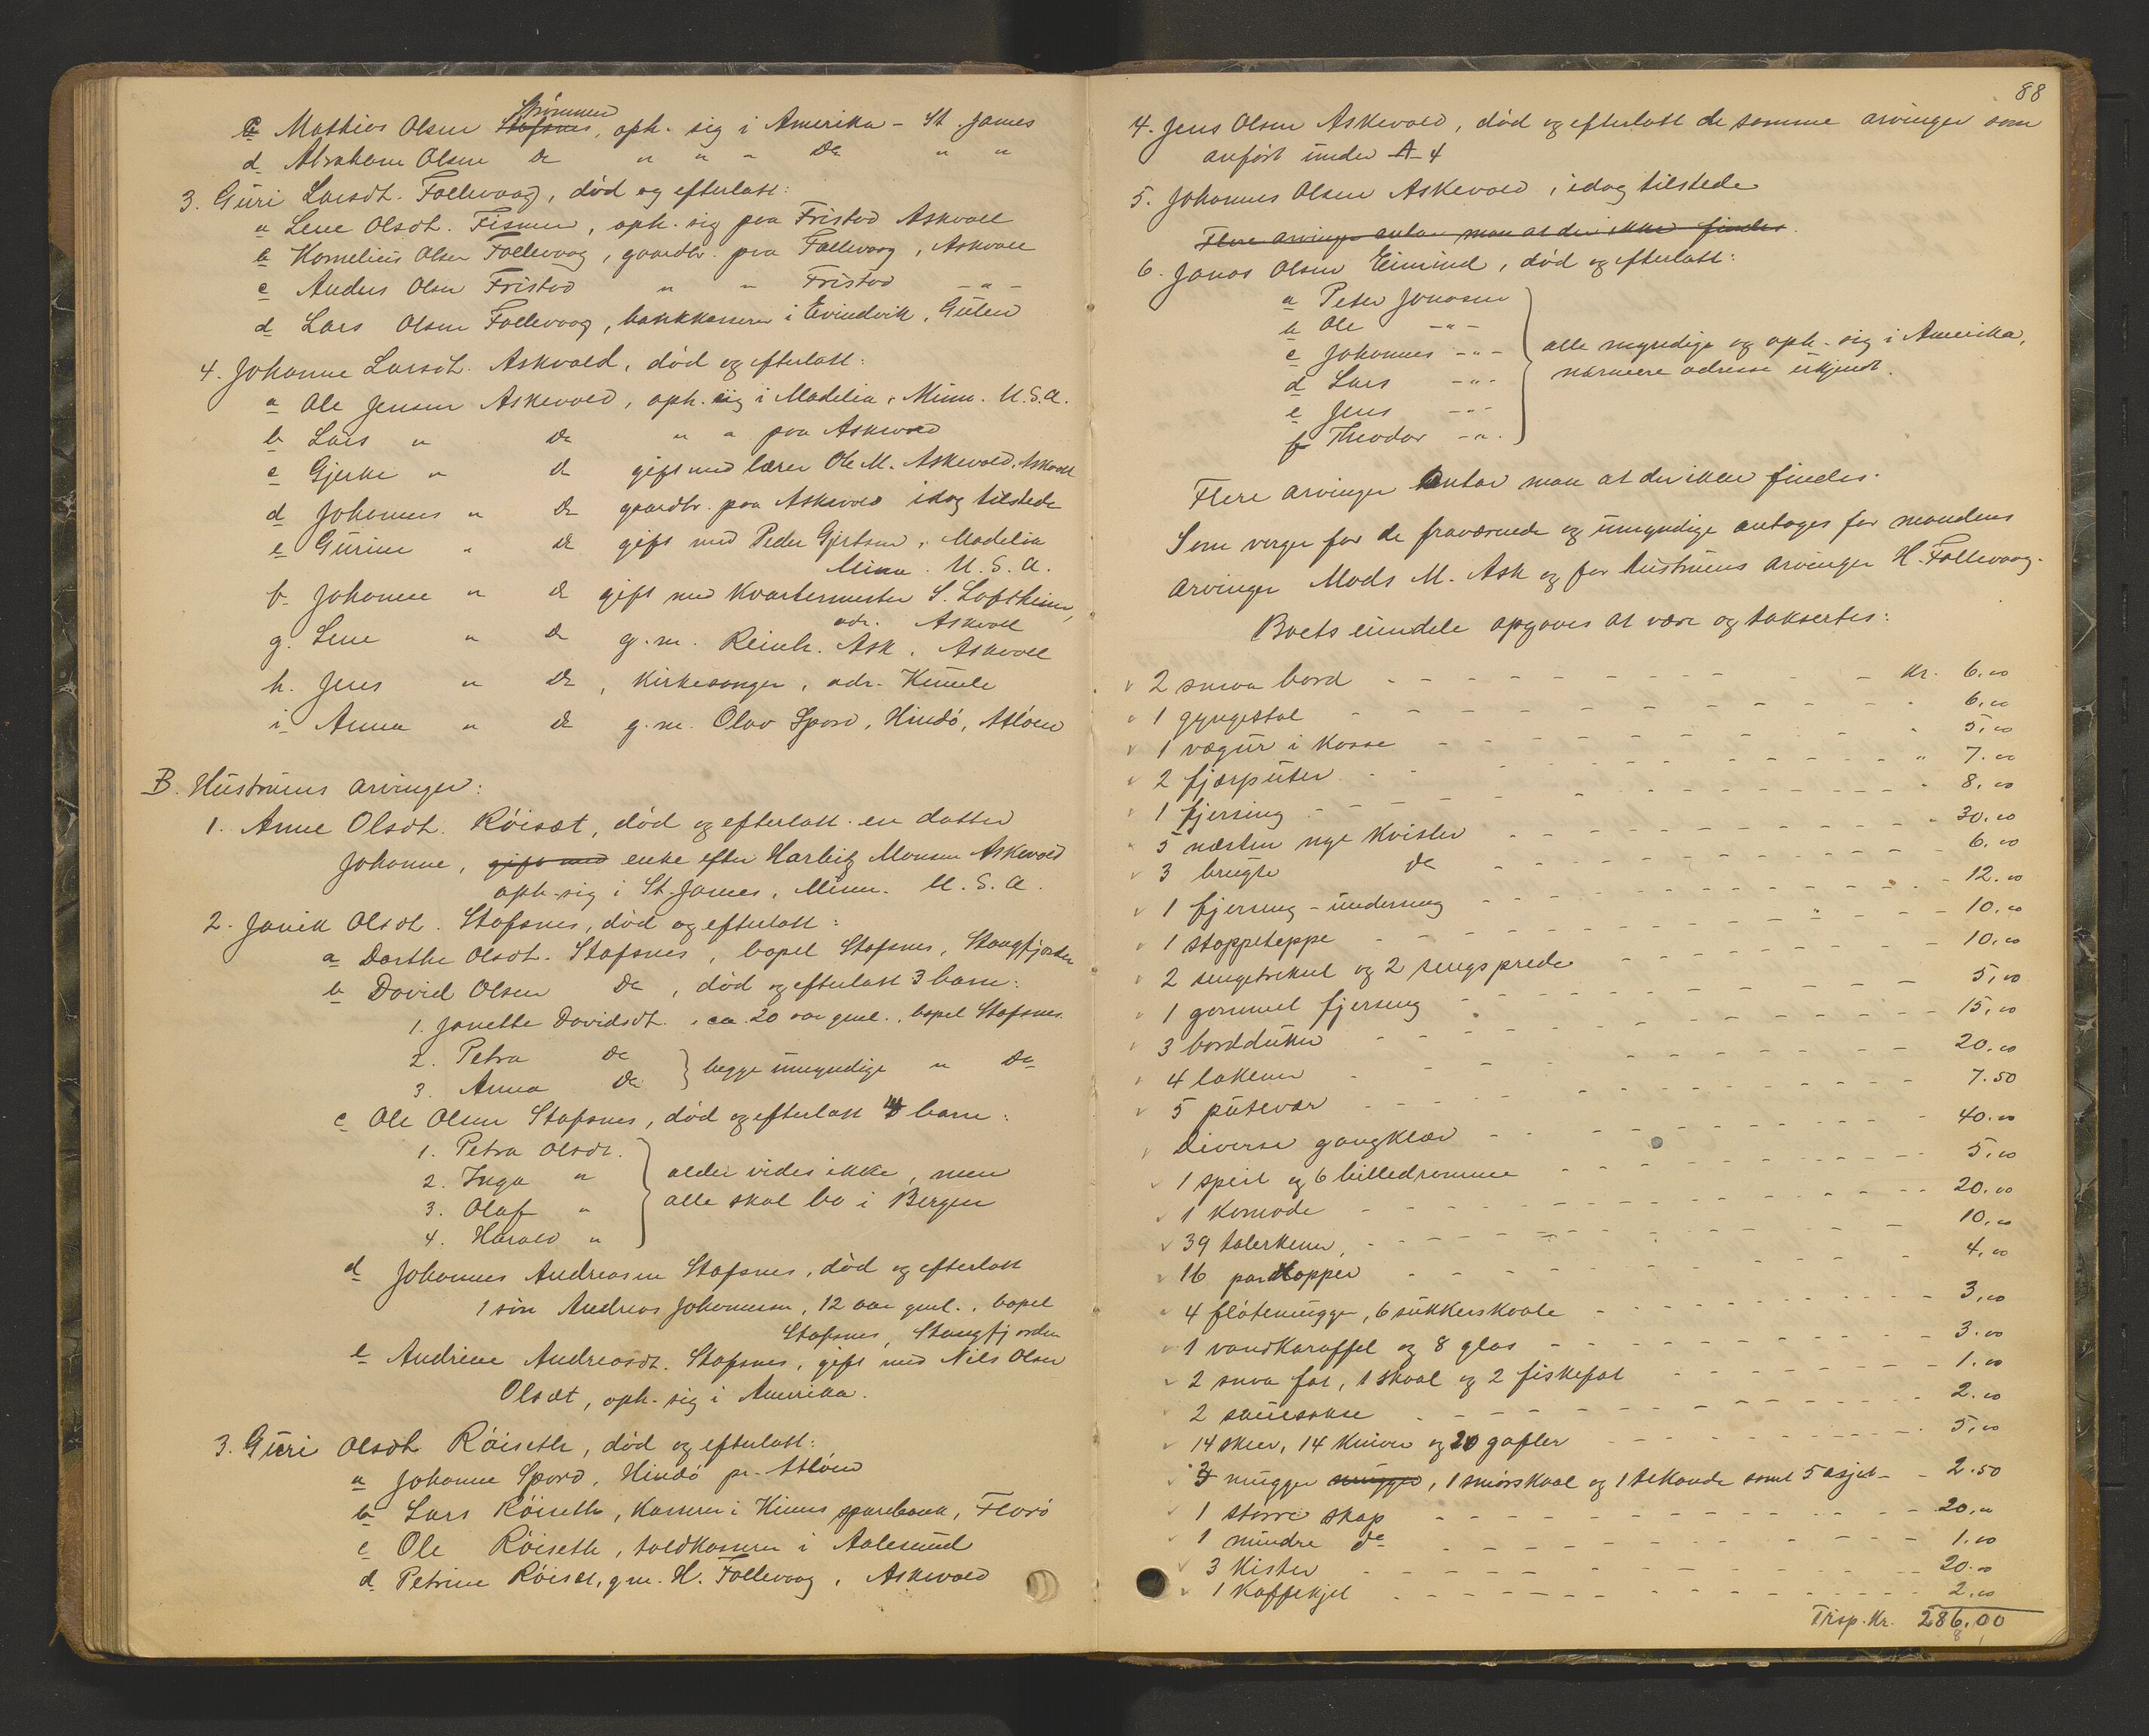 c Mathias Olsen Stofsnes Strømmen, oph. sig i Amerika - St. James
d. Abraham Olsen Do " " " Do " "
3. Guri Larsdt. Follevaag, død og efterlatt:
a Lene Olsdt. , oph. sig paa Fristad Askvoll
b Kornelius Olsen Follevaag, gaardbr. paa Follevaag, Askvoll
c Anders Olsen Fristad " " Fristad -"-
d Lars Olsen Follevaag, bankkasserer i Eivindvik, Gulen
4. Johanne Larsdt. Askvold, død og efterlatt:
a Ole Jensen Askevold, oph. sig i Madelia, Minn. U.S.A.
b Lars " Do " " paa Askevold
c Gjerke " Do gift med lærer Ole M. Askevold, Askvoll
d Johannes " Do gaardbr. paa Askevold idag tilstede
e Gurine " Do gift med Peder Gjertsen, Madelia
Minn. U.S.A.
f. Johanne " Do gift med Kvartermester S. Loftheim,
adr. Askvoll
g. Lene " Do g.m. Reinh. Ask, Askvoll
h. Jens " Do, Kirkesanger, adr. Kinn
i Anna " Do g.m. Olav Spord, Hindø, Atløen
B. Hustruens arvinger:
1. Anne Olsdt. Røisæt, død og efterlatt en datter
Johanne, gift med enke efter Harbitz Monsen Askevold
oph. sig i St. James, Minn. U.S.A.
2. Janik Olsdt. Stafsnes, død og efterlatt:
a Dorthe Olsdt. Stafsnes, bopel Stafsnes, Stangfjorden
b David Olsen Do, død og efterlatt 3 barn:
1. Janette Davidsdt., ca. 20 aar gml., bopel Stafsnes.
2. Petra Do } begge umyndige " Do
3. Anna Do
c Ole Olsen Stafsnes, død og efterlatt 4 barn:
1. Petra Olsdt.
2. Inga " alder vides ikke, men
3. Olaf " alle skal bo i Bergen
4. Harald "
d Johannes Andreasen Stafsnes, død og efterlatt
1 søn Andreas Johannesen, 12 aar gml., bopel
Stafsnes, Stangfjorden
e Andrine Andreasdt. Stafsnes, gift med Nils Olsen
Olset, oph. sig i Amerika.
3. Guri Olsdt Røiseth, død og efterlatt:
a Johanne Spord, Hindø pr. Atløen
b Lars Røiseth, kasserer i Kinns sparebank, Florø
c Ole Røiseth, toldkasserer i Aalesund
d Petrine Røiset, g.m. H. Follevaag, Askevold
88
4. Jens Olsen Askevold, død og efterlatt de samme arvinger som
anført under A-4
5. Johannes Olsen Askevold, idag tilstede
Flere arvinger antar man at der ikke findes.
6. Jonas Olsen Eimind, død og efterlatt:
a Peter Jonasen
b Ole -"-
c Johannes -"- alle myndige og oph. sig i Amerika,
d Lars -"- nærmere adresse ukjendt.
e Jens -"-
f Theodor -"-
Flere arvinger antar man at der ikke findes.
Som verger for de fraværende og umyndige antages for mandens
arvinger Mads M. Ask og for hustruens arvinger H. Follevaag.
Boets eiendele opgaves at være og taksertes:
2 smaa bord - kr. 6,00
1 gyngestol - 6,00
1 vægur i kasse - " 5,00
2 fjærputer - " 7.00
1 fjerseng - " 8,00
5 næsten nye kvitler - " 30,00
3 brugte do - 6,00
1 fjerseng - underseng - 12.00
1 stoppeteppe - 10,00
2 sengetrekul og 2 sengsprede - 10,00
1 gammel fjerseng - 5,00
3 bordduker - 15,00
4 lakener - 20.00
5 putevar - 7.50
Diverse gangklær - 40.00
1 speil og 6 billedramme - 5,00
1 Komode - 20.00
39 talerkener, - 10,00
16 par kopper - 4,00
4 fløtemugger, 6 sukkerskaale - 3,00
1 vandkaraffel og 8 glas - 3.00
2 smaa fat, 1 skaal og 2 fiskefat - 1.00
2 sauesakse - 2.00
14 skeer, 14 kniver og 20 gafler - 5,00
3 mugger mugger, 1 smørskaal og 1 tekande samt 5 asjet - 2.50
1 større skap - 20,00
1 mindre do - 1.00
3 Kister - 20.00
1 Kaffekjel - 2.00
Trsp. Kr. 286.00
8